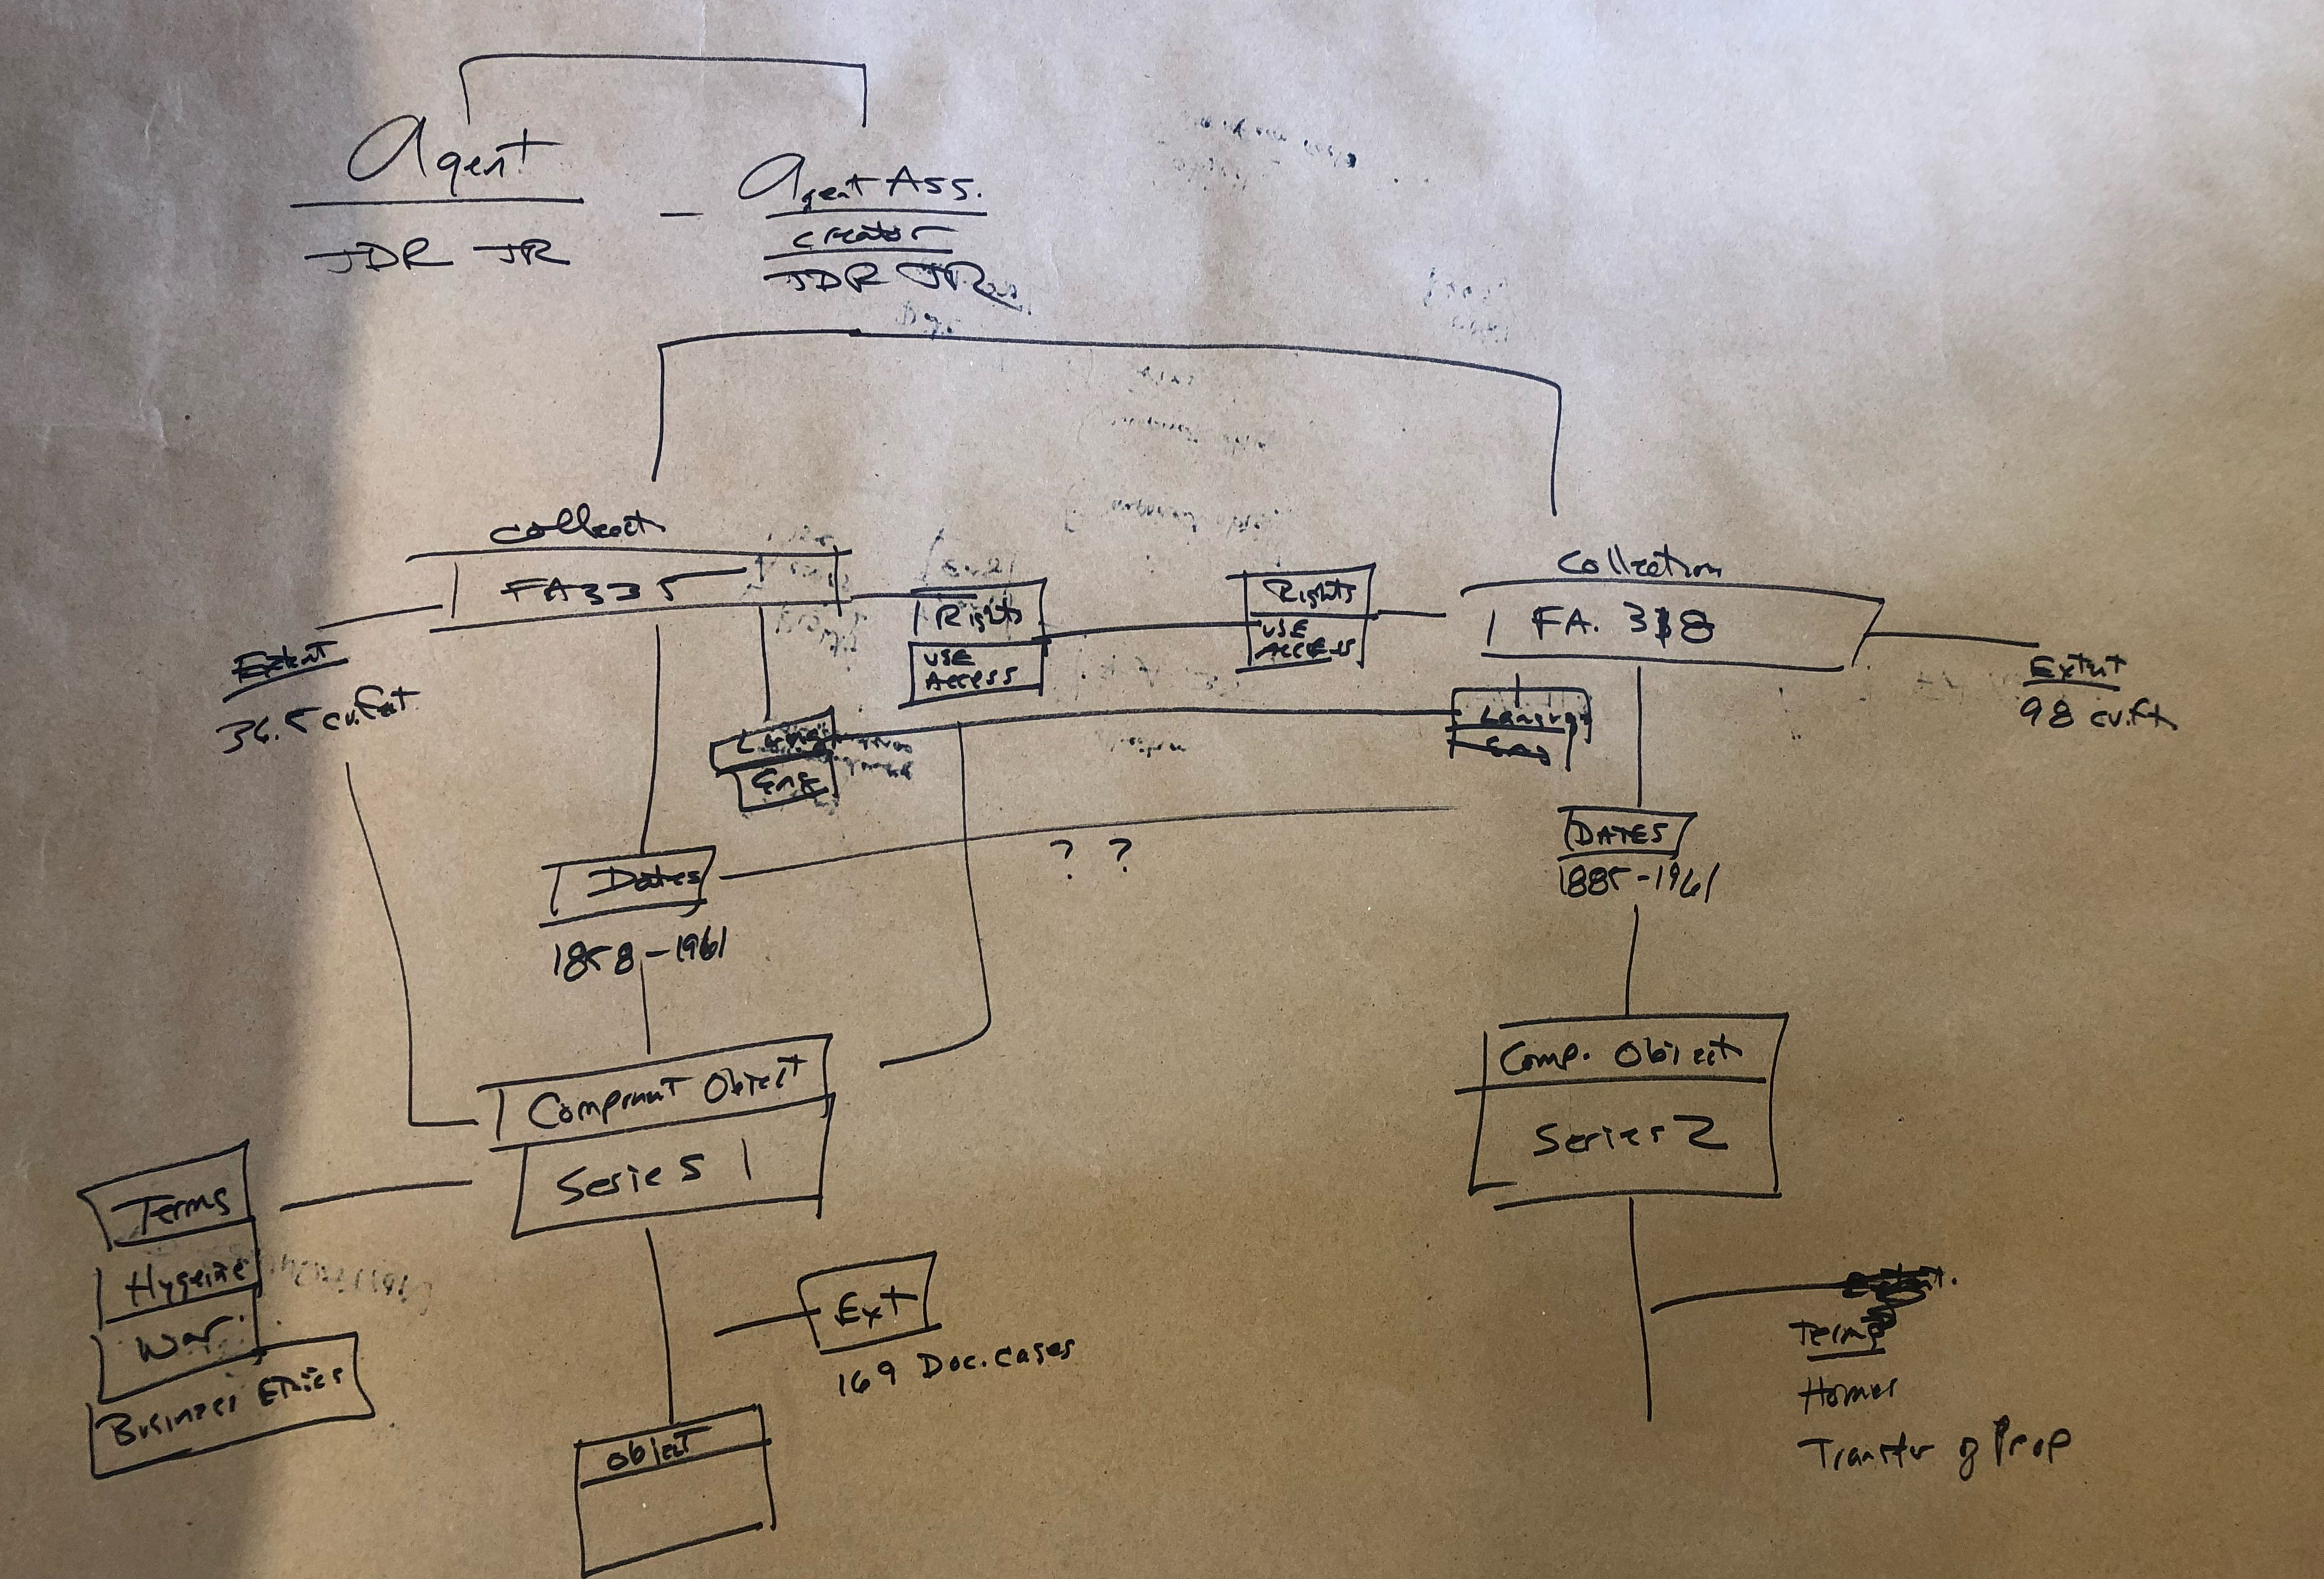 Agent
JDR JR
Agent Ass.
creator
JDR JR
collect
FA335
Extent
36.5 cu.feet
Rights
USE
Access
Rights
USE
ACCESS
Collection
FA. 318
Extent
98 cu.ft
Lang
Eng
Langug
Eng
Dates
1858-1961
? ?
DATES
1885-1961
Component Object
Series 1
Comp. Object
Series 2
Terms
Hygeine
War
Business Ethics
Ext
169 Doc. cases
object
Terms
Homes
Transfer of Prop